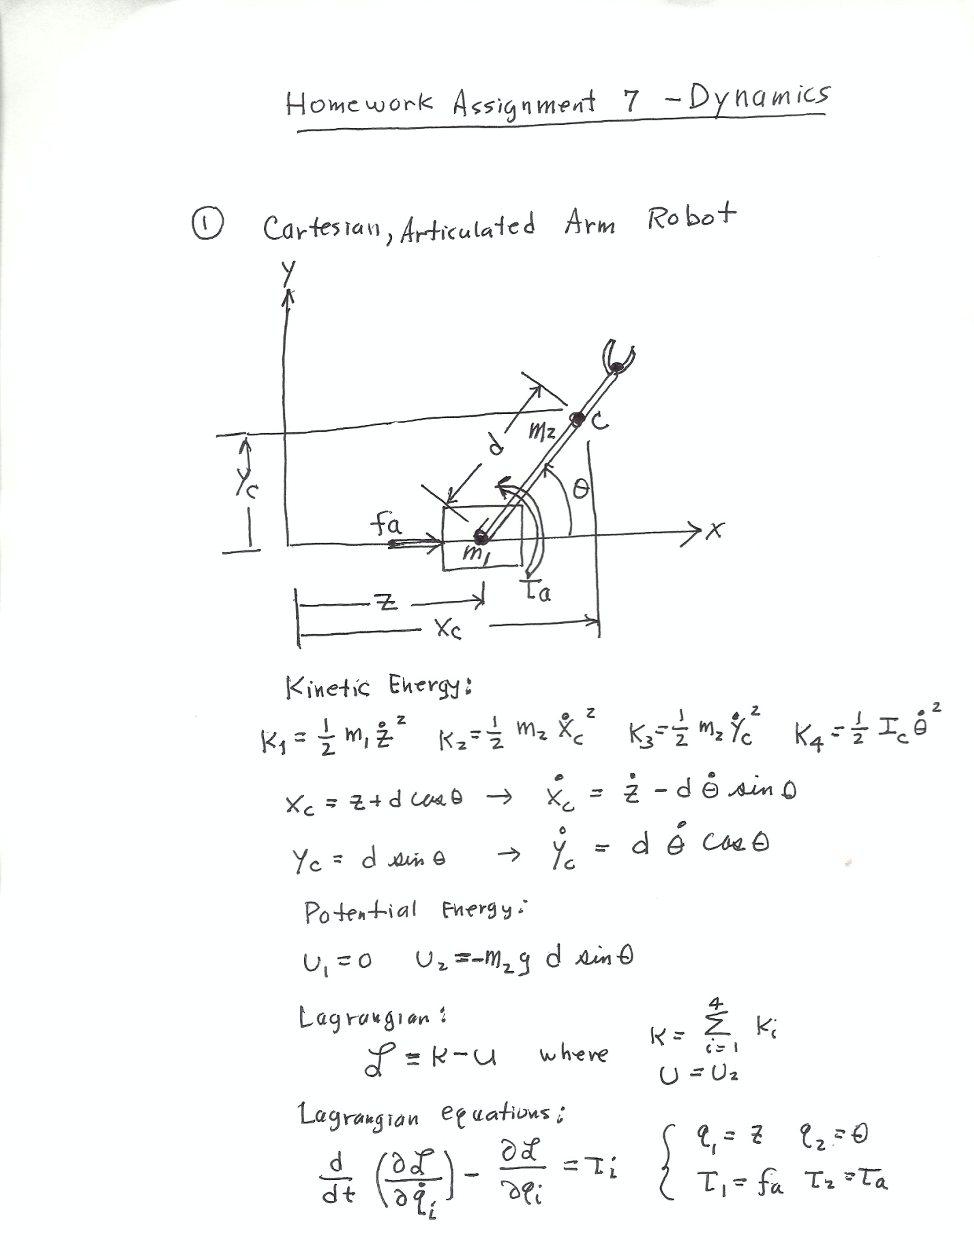 Homework Assignment 7 - Dynamics
① Cartesian, Articulated Arm Robot
Y
C
m₂
d
Yc
θ
fa
X
m₁
Ta
Z
Xc
Kinetic Energy:
K₁ = ½ m₁ ż² K₂ = ½ m₂ Ẋc² K₃ = ½ m₂ Ẏc² K₄ = ½ Ic θ̇²
Xc = z + d cos θ → Ẋc = ż - d θ̇ sin θ
Yc = d sin θ → Ẏc = d θ̇ cos θ
Potential Energy:
U₁ = 0 U₂ = -m₂ g d sin θ
Lagrangian:
ℒ = K - U where K = Σ_{i=1}^{4} Ki
U = U₂
Lagrangian equations:
d/dt (∂ℒ/∂q̇i) - ∂ℒ/∂qi = Ti { q₁ = z q₂ = θ
T₁ = fa T₂ = Ta